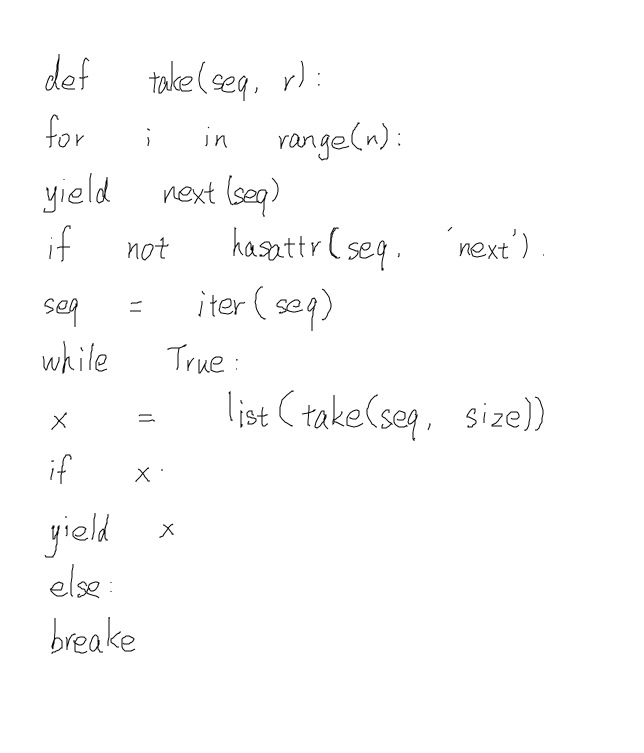 def take(seq, r):
for i in range(n):
yield next(seq)
if not hasattr(seq. 'next').
seq = iter(seq)
while True:
x = list(take(seq, size))
if x.
yield x
else:
breake